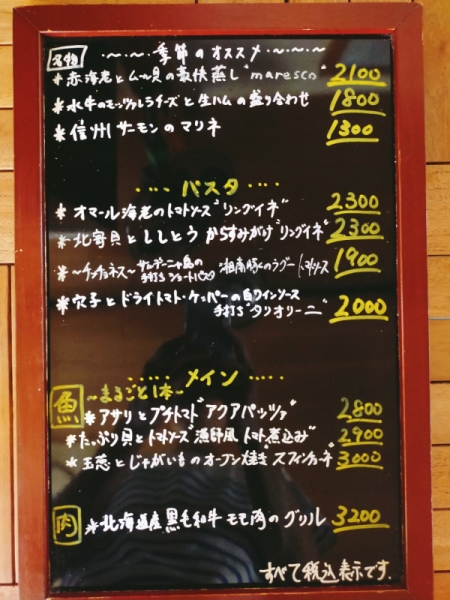 名物 〜・〜・季節のオススメ・〜・〜・
*赤海老とムール貝の豪快蒸し "maresco" 2100
*水牛のモッツァレラチーズと生ハムの盛り合わせ 1800
*信州サーモンのマリネ 1300
・・・・パスタ・・・・
*オマール海老のトマトソース"リングイネ" 2300
*北寄貝とししとう からすみがけ"リングイネ" 2300
*〜チンチョネス〜 サルデーニャ島の手打ちショートパスタ 湘南豚のラグー トマトソース 1900
*穴子とドライトマト・ケッパーの白ワインソース
手打ち"タリオリーニ" 2000
・・・・・メイン・・・・・
魚 〜まるごと1本〜
*アサリとプチトマト"アクアパッツァ" 2800
*たっぷり貝とトマトソース"漁師風トマト煮込み" 2900
*玉葱とじゃがいものオーブン焼き スフィンチョーネ" 3000
肉 *北海道産黒毛和牛モモ肉のグリル 3200
すべて税込表示です.